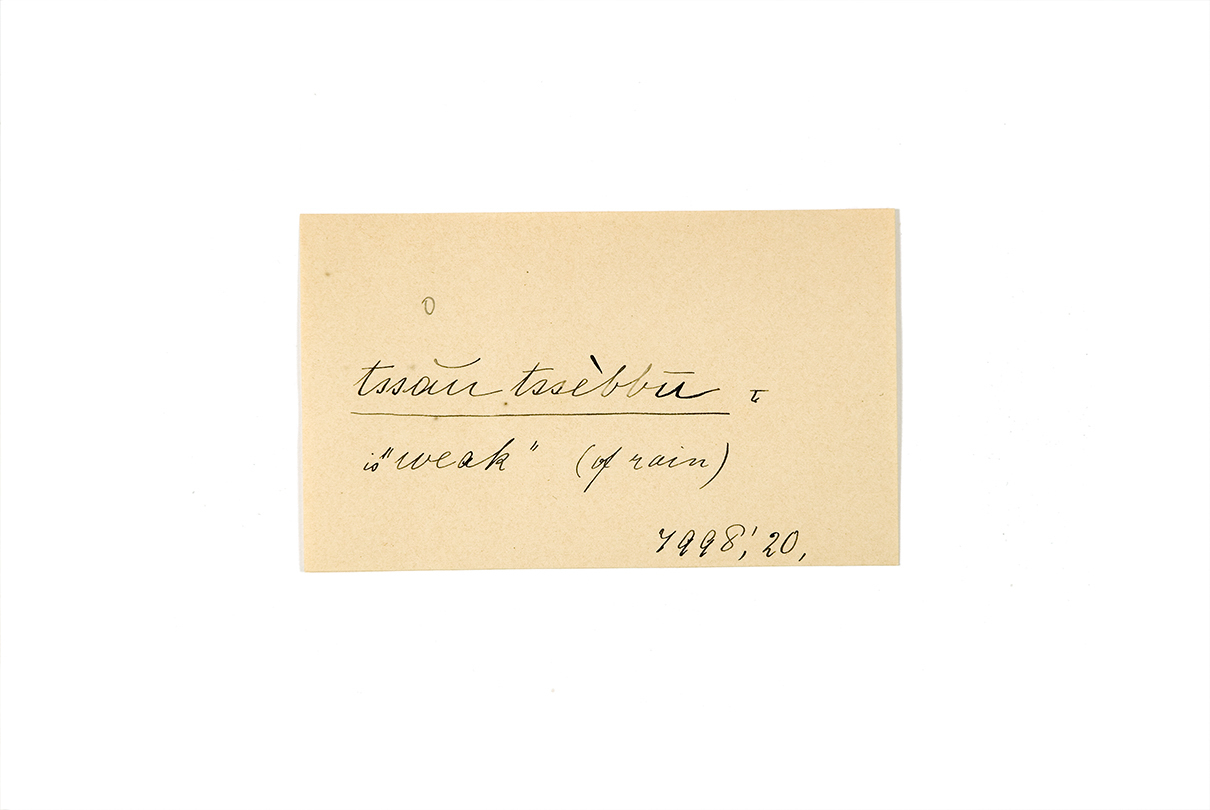 0
tssău tssèbbū
is "weak" (of rain)
7998,' 20,